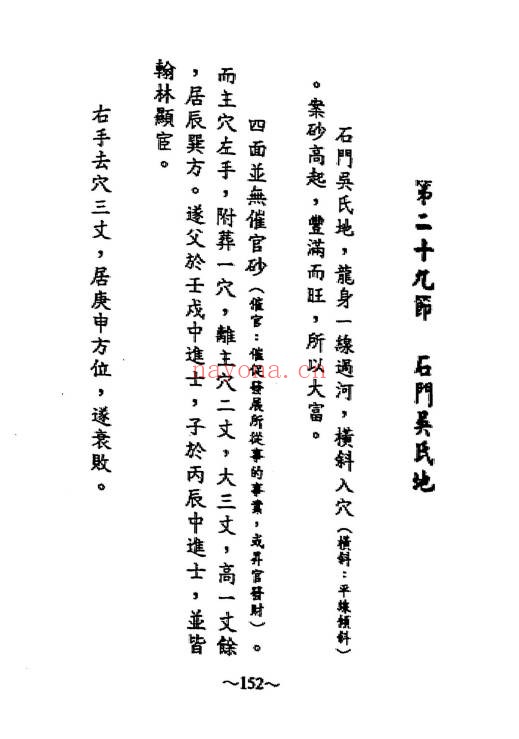 第二十九節　石門吳氏地
石門吳氏地，龍身一線過河，橫斜入穴（橫斜：平線傾斜）
。案砂高起，豐滿而旺，所以大富。
四面並無催官砂（催官：催促發展所從事的事業，或昇官發財）。
而主穴左手，附葬一穴，離主穴二丈，大三丈，高一丈餘
，居辰巽方。遂父於壬戌中進士，子於丙辰中進士，並皆
翰林顯宦。
右手去穴三丈，居庚申方位，遂衰敗。
nayona.cn
～152～